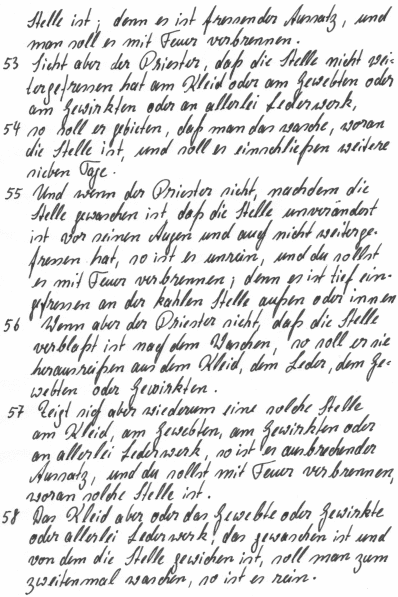 Stelle ist; denn es ist fressender Aussatz, und
man soll es mit Feuer verbrennen.
53 Sieht aber der Priester, daß die Stelle nicht wei-
tergefressen hat am Kleid oder am Gewebten oder
am Gewirkten oder an allerlei Lederwerk,
54 so soll er gebieten, daß man das wasche, woran
die Stelle ist, und soll es einschließen weitere
sieben Tage.
55 Und wenn der Priester sieht, nachdem die
Stelle gewaschen ist, daß die Stelle unverändert
ist vor seinen Augen und auch nicht weiterge-
fressen hat, so ist es unrein, und du sollst
es mit Feuer verbrennen; denn es ist tief ein-
gefressen an der kahlen Stelle außen oder innen
56 Wenn aber der Priester sieht, daß die Stelle
verblaßt ist nach dem Waschen, so soll er sie
herausreißen aus dem Kleid, dem Leder, dem Ge-
webten oder Gewirkten.
57 Zeigt sich aber wiederum eine solche Stelle
am Kleid, am Gewebten, am Gewirkten oder
an allerlei Lederwerk, so ist es ausbrechender
Aussatz, und du sollst mit Feuer verbrennen,
woran solche Stelle ist.
58 Das Kleid aber oder das Gewebte oder Gewirkte
oder allerlei Lederwerk, das gewaschen ist und
von dem die Stelle gewichen ist, soll man zum
zweitenmal waschen, so ist es rein.